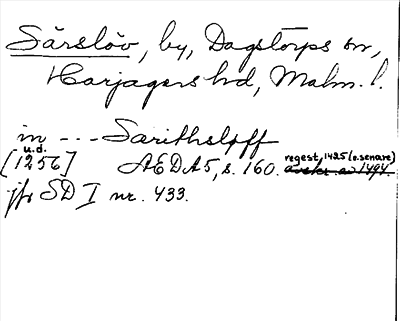 Särslöv, by, Dagstorps sn,
Harjagers hd, Malm. l.
in --- Sarithsloff
u.d.
[1256] AEDA5, s. 160. regest 1425 (o. senare) avskr. av 1494.
jfr SD I nr. 433.